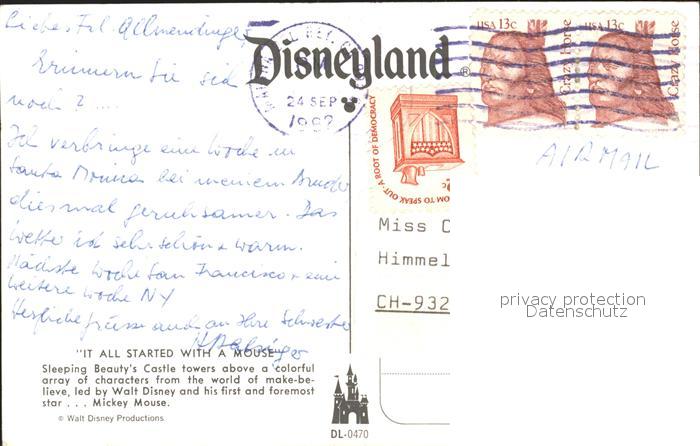 Liebes Frl. Allmendinger,
Erinnern Sie sich
noch? ....
Ich verbringe eine Woche in
Santa Monica bei meinem Bruder
diesmal geruhsamer. Das
Wetter ist sehr schön + warm.
Nächste Woche San Francisco + eine
weitere Woche NY
Herzliche Grüsse auch an Ihre Schwester
"IT ALL STARTED WITH A MOUSE"
Sleeping Beauty's Castle towers above a colorful
array of characters from the world of make-be-
lieve, led by Walt Disney and his first and foremost
star . . . Mickey Mouse.
© Walt Disney Productions
Disneyland®
24 SEP
USA 13c
Crazy Horse
USA 13c
Crazy Horse
OM TO SPEAK OUT-A ROOT OF DEMOCRACY
AIRMAIL
Miss
Himmel
CH-932
privacy protection
Datenschutz
DL-0470